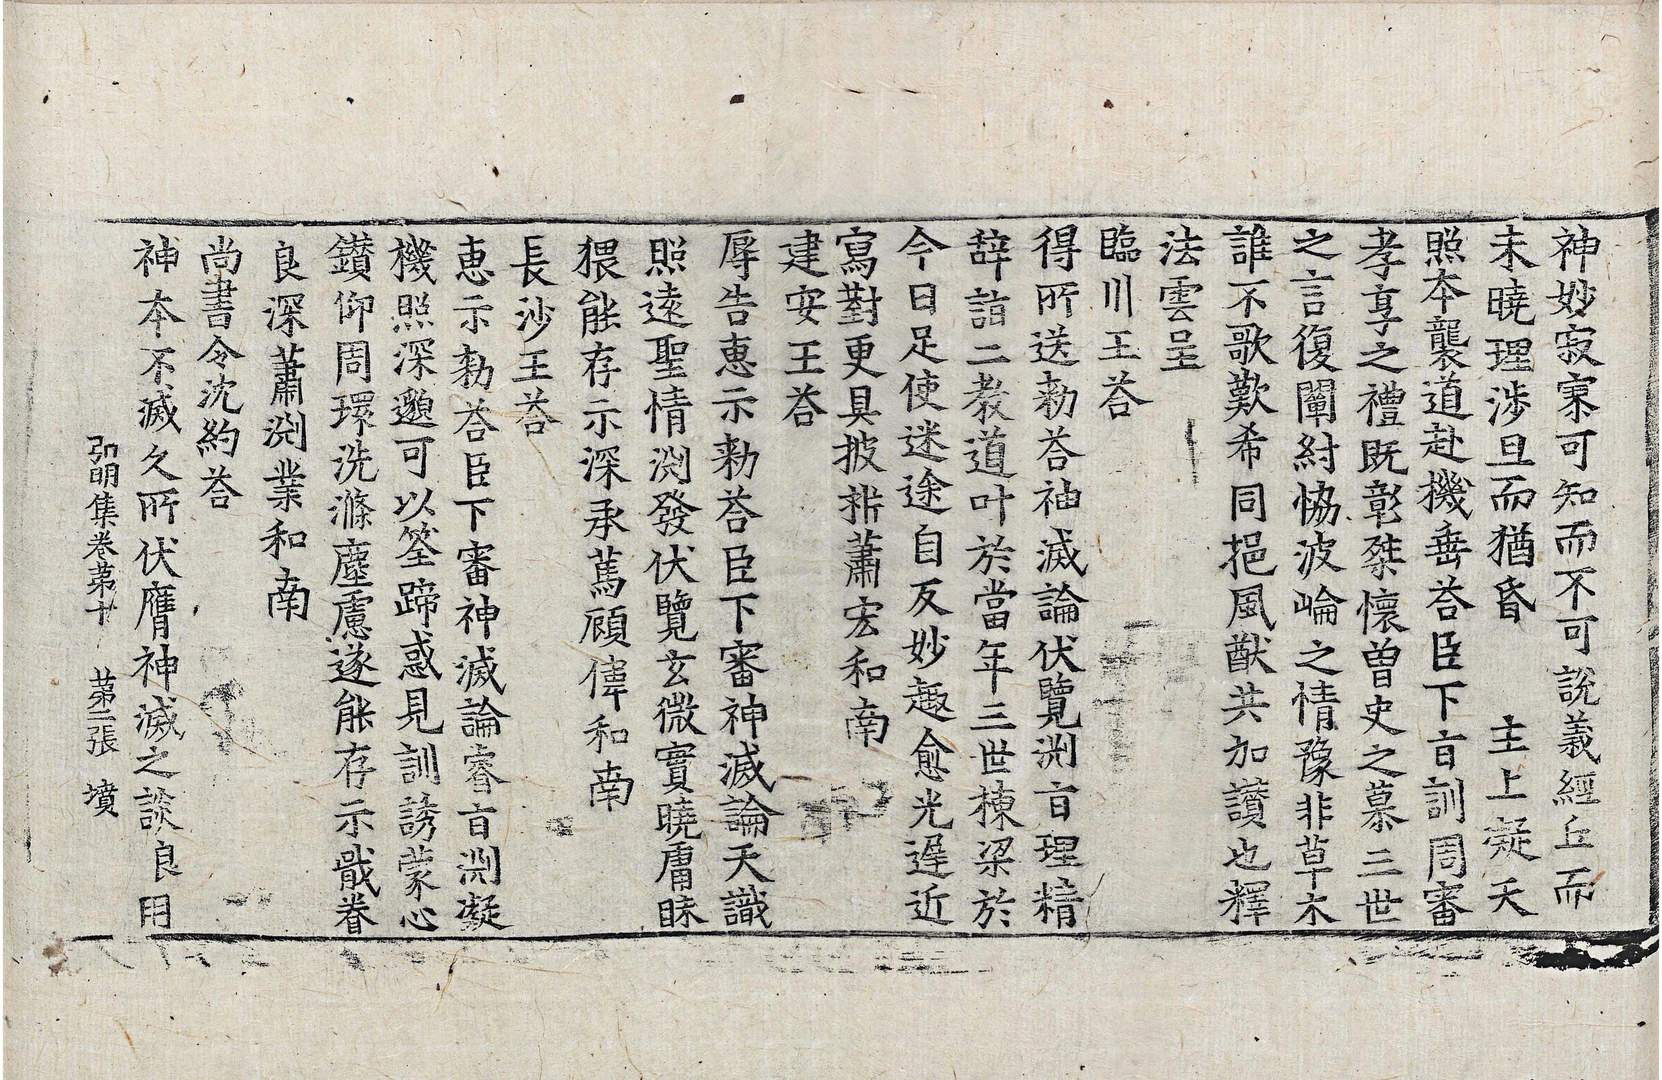 神妙寂寞可知而不可說義經丘而
未曉理涉旦而猶昏　主上凝天
照本襲道赴機垂荅臣下旨訓周審
孝享之禮既彰桀懷曾史之慕三世
之言復闡紂協波崘之情豫非草木
誰不歌歎希同挹風猷共加讃也釋
法雲呈
臨川王荅
得所送勑荅神滅論伏覽渕旨理精
辞詣二教道叶於當年三世棟梁於
今日足使迷途自反妙趣愈光遅近
寫對更具披析蕭宏和南
建安王荅
辱告惠示勑荅臣下審神滅論天識
照遠聖情渕發伏覽玄微實曉庸昧
猥能存示深承篤顧偉和南
長沙王荅
恵示勑荅臣下審神滅論睿旨渕凝
機照深邈可以筌蹄惑見訓誘蒙心
鑚仰周環洗滌塵慮遂能存示戢眷
良深蕭渕業和南
尚書令沈約荅
神本不滅久所伏膺神滅之談良用
弘明集卷苐十　苐二張　墳